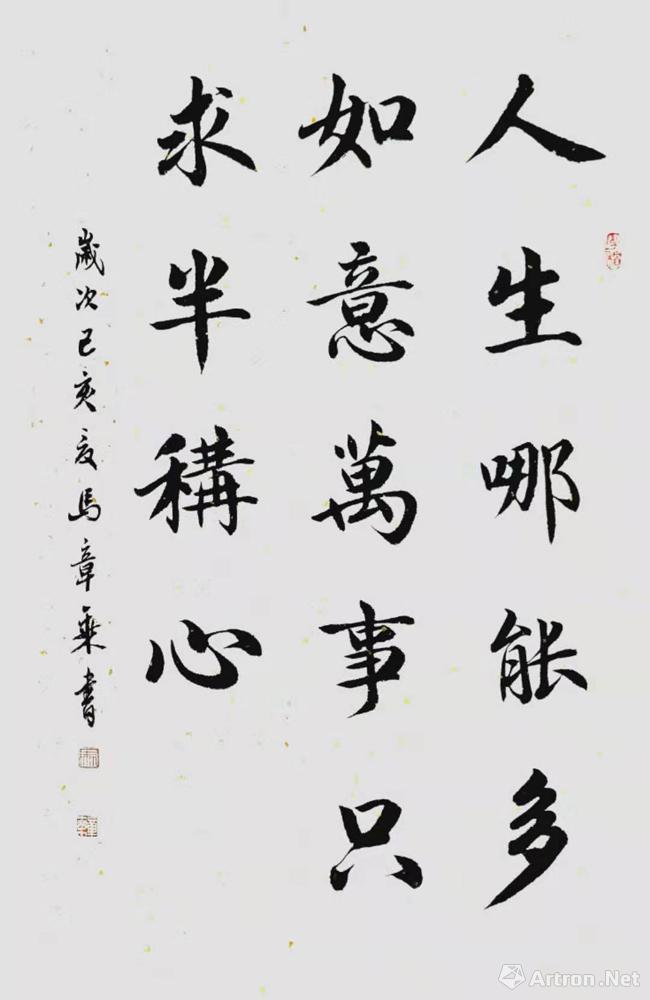 人生哪能多
如意萬事只
求半稱心
歲次己亥夏馬章乘書
Artron.Net